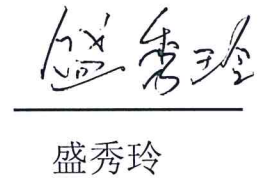 盛秀玲
盛秀玲